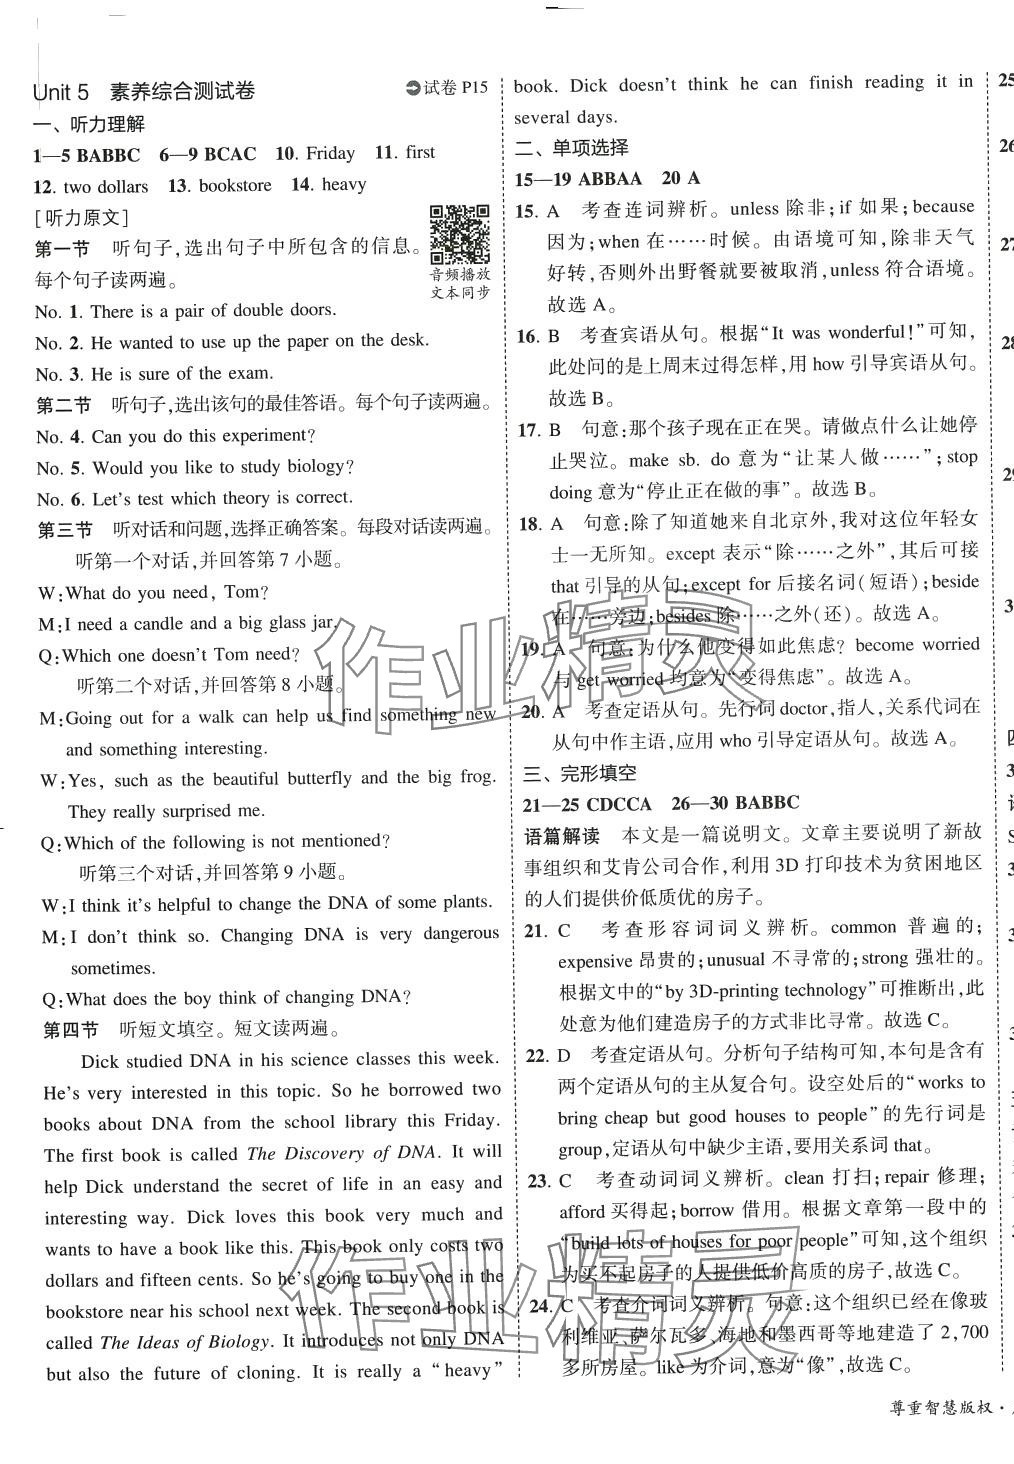 Unit 5　素养综合测试卷　试卷 P15
一、听力理解
1—5 BABBC　6—9 BCAC　10. Friday　11. first
12. two dollars　13. bookstore　14. heavy
[听力原文]
第一节　听句子,选出句子中所包含的信息。
每个句子读两遍。
音频播放
文本同步
No. 1. There is a pair of double doors.
No. 2. He wanted to use up the paper on the desk.
No. 3. He is sure of the exam.
第二节　听句子,选出该句的最佳答语。每个句子读两遍。
No. 4. Can you do this experiment?
No. 5. Would you like to study biology?
No. 6. Let's test which theory is correct.
第三节　听对话和问题,选择正确答案。每段对话读两遍。
听第一个对话,并回答第 7 小题。
W:What do you need, Tom?
M:I need a candle and a big glass jar.
Q:Which one doesn't Tom need?
听第二个对话,并回答第 8 小题。
M:Going out for a walk can help us find something new
and something interesting.
W:Yes, such as the beautiful butterfly and the big frog.
They really surprised me.
Q:Which of the following is not mentioned?
听第三个对话,并回答第 9 小题。
W:I think it's helpful to change the DNA of some plants.
M:I don't think so. Changing DNA is very dangerous
sometimes.
Q:What does the boy think of changing DNA?
第四节　听短文填空。短文读两遍。
Dick studied DNA in his science classes this week.
He's very interested in this topic. So he borrowed two
books about DNA from the school library this Friday.
The first book is called The Discovery of DNA. It will
help Dick understand the secret of life in an easy and
interesting way. Dick loves this book very much and
wants to have a book like this. This book only costs two
dollars and fifteen cents. So he's going to buy one in the
bookstore near his school next week. The second book is
called The Ideas of Biology. It introduces not only DNA
but also the future of cloning. It is really a "heavy"
book. Dick doesn't think he can finish reading it in
several days.
二、单项选择
15—19 ABBAA　20 A
15. A　考查连词辨析。unless 除非;if 如果;because
因为;when 在……时候。由语境可知,除非天气
好转,否则外出野餐就要被取消,unless 符合语境。
故选 A。
16. B　考查宾语从句。根据"It was wonderful!"可知,
此处问的是上周末过得怎样,用 how 引导宾语从句。
故选 B。
17. B　句意:那个孩子现在正在哭。请做点什么让她停
止哭泣。make sb. do 意为"让某人做……";stop
doing 意为"停止正在做的事"。故选 B。
18. A　句意:除了知道她来自北京外,我对这位年轻女
士一无所知。except 表示"除……之外",其后可接
that 引导的从句;except for 后接名词(短语);beside
在……旁边;besides 除……之外(还)。故选 A。
19. A　句意:为什么他变得如此焦虑? become worried
与 get worried 均意为"变得焦虑"。故选 A。
20. A　考查定语从句。先行词 doctor,指人,关系代词在
从句中作主语,应用 who 引导定语从句。故选 A。
三、完形填空
21—25 CDCCA　26—30 BABBC
语篇解读　本文是一篇说明文。文章主要说明了新故
事组织和艾肯公司合作,利用 3D 打印技术为贫困地区
的人们提供价低质优的房子。
21. C　考查形容词词义辨析。common 普遍的;
expensive 昂贵的;unusual 不寻常的;strong 强壮的。
根据文中的"by 3D-printing technology"可推断出,此
处意为他们建造房子的方式非比寻常。故选 C。
22. D　考查定语从句。分析句子结构可知,本句是含有
两个定语从句的主从复合句。设空处后的"works to
bring cheap but good houses to people"的先行词是
group,定语从句中缺少主语,要用关系词 that。
23. C　考查动词词义辨析。clean 打扫;repair 修理;
afford 买得起;borrow 借用。根据文章第一段中的
"build lots of houses for poor people"可知,这个组织
为买不起房子的人提供低价高质的房子,故选 C。
24. C　考查介词词义辨析。句意:这个组织已经在像玻
利维亚、萨尔瓦多、海地和墨西哥等地建造了 2,700
多所房屋。like 为介词,意为"像",故选 C。
尊重智慧版权·
作业精灵
作业精灵